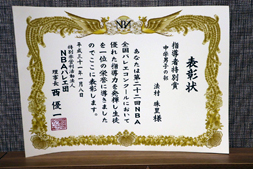 表彰状
指導者特別賞
中学男子の部
法村 珠里様
あなたは第二十二回NBA
全国バレエコンクールにおいて
優れた指導力を発揮し生徒
を一位の栄誉に導きました
のでここに表彰します。
平成三十一年一月八日
特別非営利活動法人
NBAバレエ団
理事長 西 優一